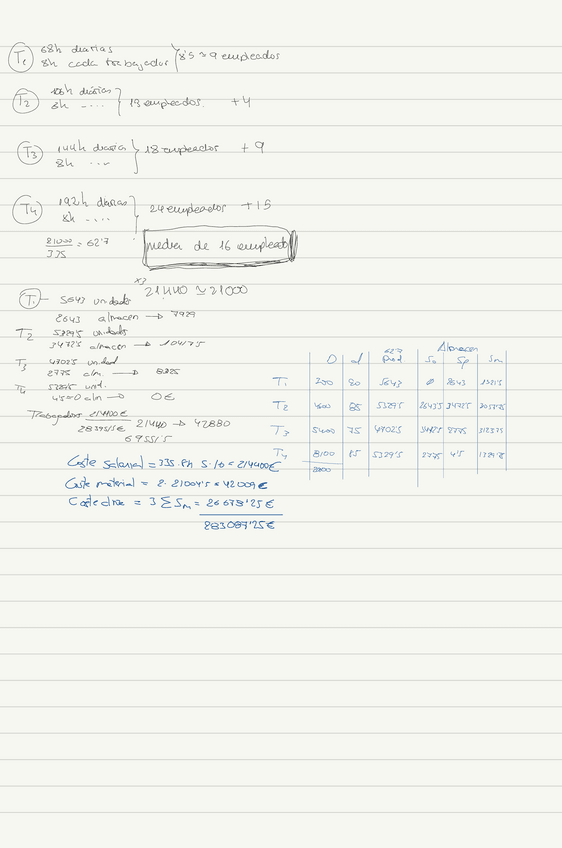 T1 68h diarias
8h cada trabajador 8'5 ≈ 9 empleados
T2 106h diarias
8h .... 13 empleados. +4
T3 144h diarias
8h ... 18 empleados + 9
T4 192h diarias
8h .... 24 empleados +15
21000/335 = 62'7
media de 16 empleados
x3
21440 ≃ 21000
T1 - 5643 unidades
2643 almacen → 7929
T2 5329'5 unidades
3472'5 almacen → 10417'5
T3 4702'5 unidad
2775 alm. → 8325
T4 5329'5 unid.
4'5≈0 alm → 0€
Trabajadores 214400€
21440 → 42880
Almacen
D d 62'7 Prod So Sf Sm
T1 90 5643 0 2643 1321'5
T2 85 5329'5 2643'5 3472'5
T3 5400 75 4702'5 3472'5 2775
T4 8100 85 5329'5 2775 4'5
Coste salarial = 335 · 8h · 5 · 16 = 214400€
Coste material = 2 · 21004'5 = 42009€
Coste almac = 3 Σ Sm = 26678'25€
283087'25€